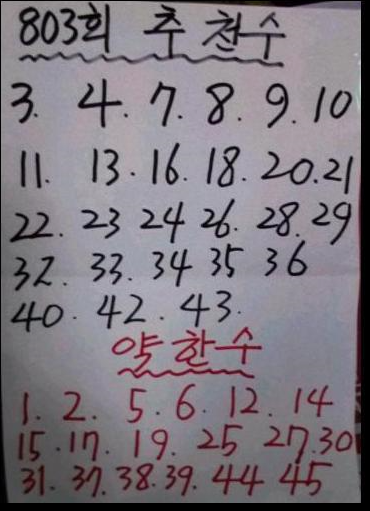 803회 추천수
3. 4. 7. 8. 9. 10
11. 13. 16. 18. 20. 21
22. 23 24 26. 28. 29
32. 33. 34 35 36
40. 42. 43.
약한수
1. 2. 5. 6. 12. 14
15. 17. 19. 25 27. 30
31. 37. 38. 39. 44 45